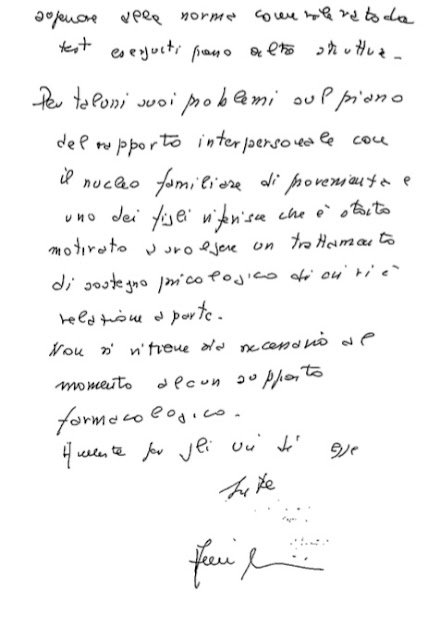 alla norma come rilevato da
test eseguiti presso altra struttura.
Per taluni suoi problemi sul piano
del rapporto interpersonale con
il nucleo familiare di provenienza e
uno dei figli riferisce che è stato
motivato a svolgere un trattamento
di sostegno psicologico di cui vi è
relazione a parte.
Non si ritiene sia necessario al
momento alcun supporto
farmacologico.
per gli usi di